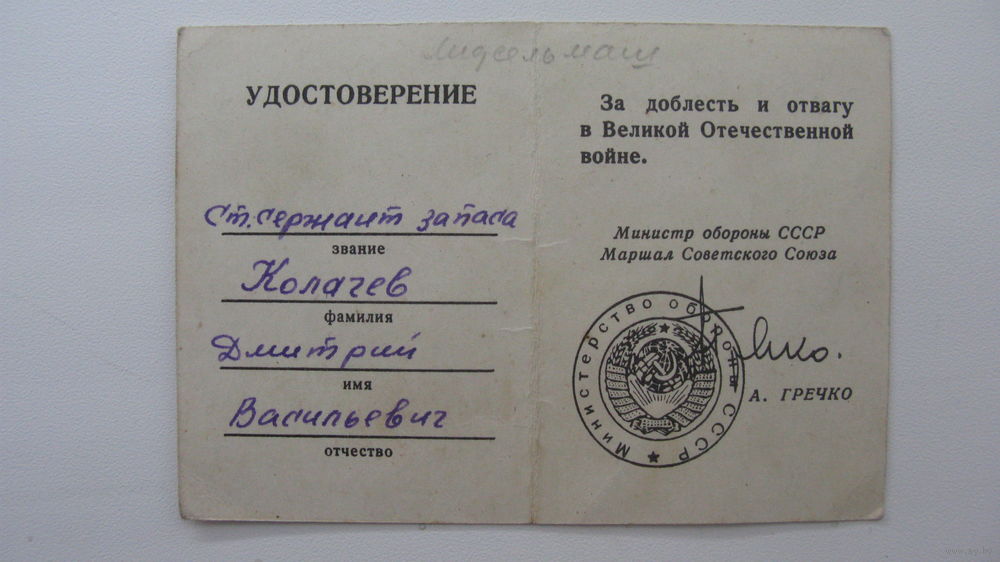 Лидсельмаш
УДОСТОВЕРЕНИЕ
Ст. сержант запаса
звание
Колачев
фамилия
Дмитрий
имя
Васильевич
отчество
За доблесть и отвагу
в Великой Отечественной
войне.
Министр обороны СССР
Маршал Советского Союза
Министерство обороны СССР
А. ГРЕЧКО